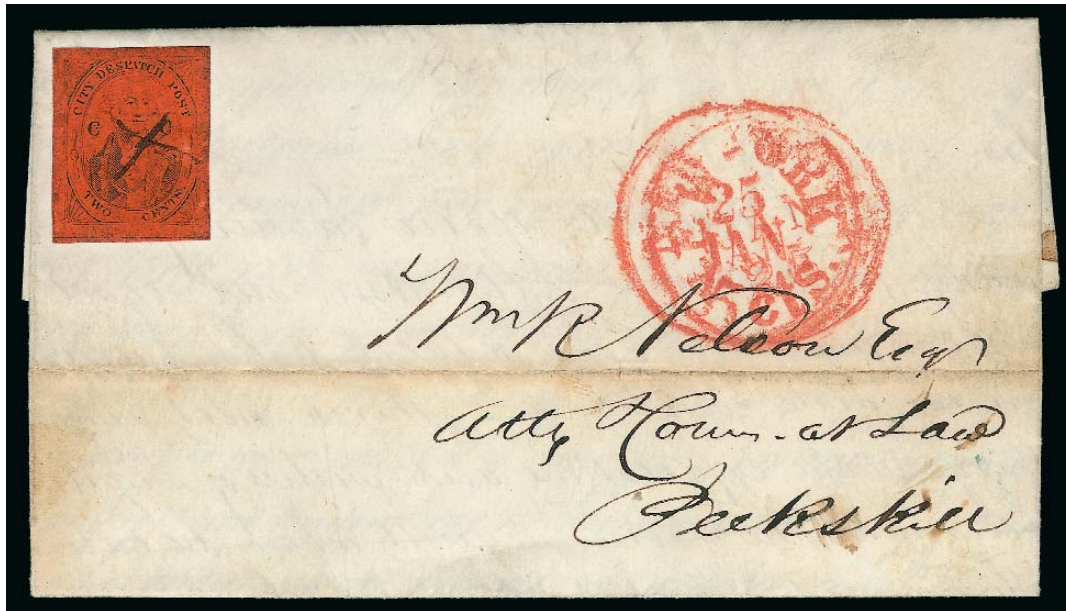 CITY DESPATCH POST
C C
TWO CENTS
NEW-YORK
25
JAN
5cts
Wm R Nelson Esqr
Atty & Coun. at Law
Peekskill